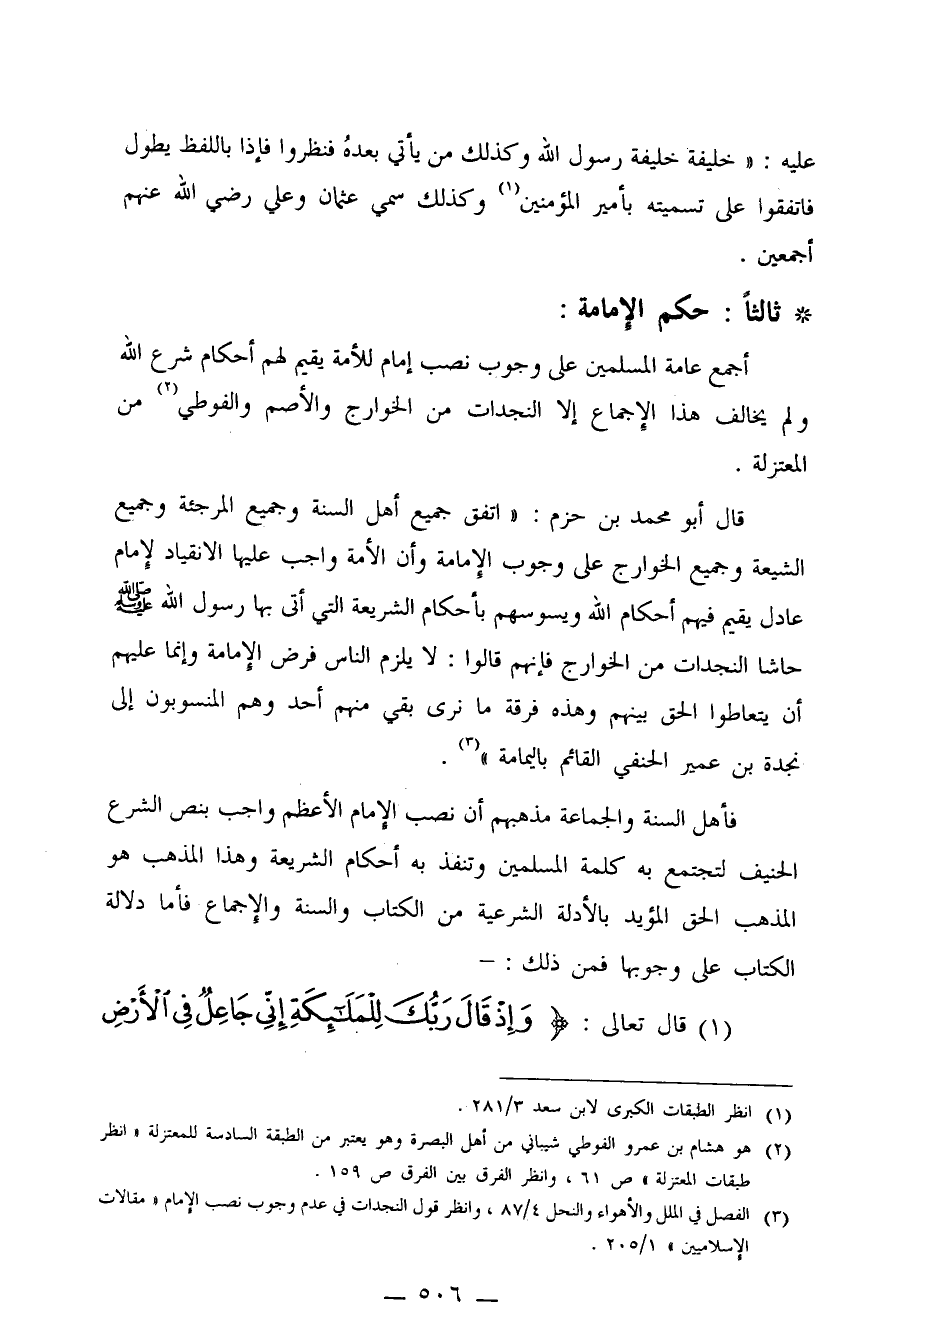 عليه : « خليفة خليفة رسول الله وكذلك من يأتي بعدهُ فنظروا فإذا باللفظ يطول
فاتفقوا على تسميته بأمير المؤمنين(١) وكذلك سمي عثمان وعلي رضي الله عنهم
أجمعين .
* ثالثاً : حكم الإمامة :
أجمع عامة المسلمين على وجوب نصب إمام للأمة يقيم لهم أحكام شرع الله
ولم يخالف هذا الإجماع إلا النجدات من الخوارج والأصم والفوطي(٢) من
المعتزلة .
قال أبو محمد بن حزم : « اتفق جميع أهل السنة وجميع المرجئة وجميع
الشيعة وجميع الخوارج على وجوب الإمامة وأن الأمة واجب عليها الانقياد لإمام
عادل يقيم فيهم أحكام الله ويسوسهم بأحكام الشريعة التي أتى بها رسول الله ﷺ
حاشا النجدات من الخوارج فإنهم قالوا : لا يلزم الناس فرض الإمامة وإنما عليهم
أن يتعاطوا الحق بينهم وهذه فرقة ما نرى بقي منهم أحد وهم المنسوبون إلى
نجدة بن عمير الحنفي القائم باليمامة »(٣) .
فأهل السنة والجماعة مذهبهم أن نصب الإمام الأعظم واجب بنص الشرع
الحنيف لتجتمع به كلمة المسلمين وتنفذ به أحكام الشريعة وهذا المذهب هو
المذهب الحق المؤيد بالأدلة الشرعية من الكتاب والسنة والإجماع فأما دلالة
الكتاب على وجوبها فمن ذلك : –
(١) قال تعالى : ﴿ وَإِذْ قَالَ رَبُّكَ لِلْمَلَٰٓئِكَةِ إِنِّي جَاعِلٌ فِي ٱلْأَرْضِ
(١) انظر الطبقات الكبرى لابن سعد ٢٨١/٣ .
(٢) هو هشام بن عمرو الفوطي شيباني من أهل البصرة وهو يعتبر من الطبقة السادسة للمعتزلة « انظر
طبقات المعتزلة » ص ٦١ ، وانظر الفرق بين الفرق ص ١٥٩ .
(٣) الفصل في الملل والأهواء والنحل ٨٧/٤ ، وانظر قول النجدات في عدم وجوب نصب الإمام « مقالات
الإسلاميين » ٢٠٥/١ .
— ٥٠٦ —